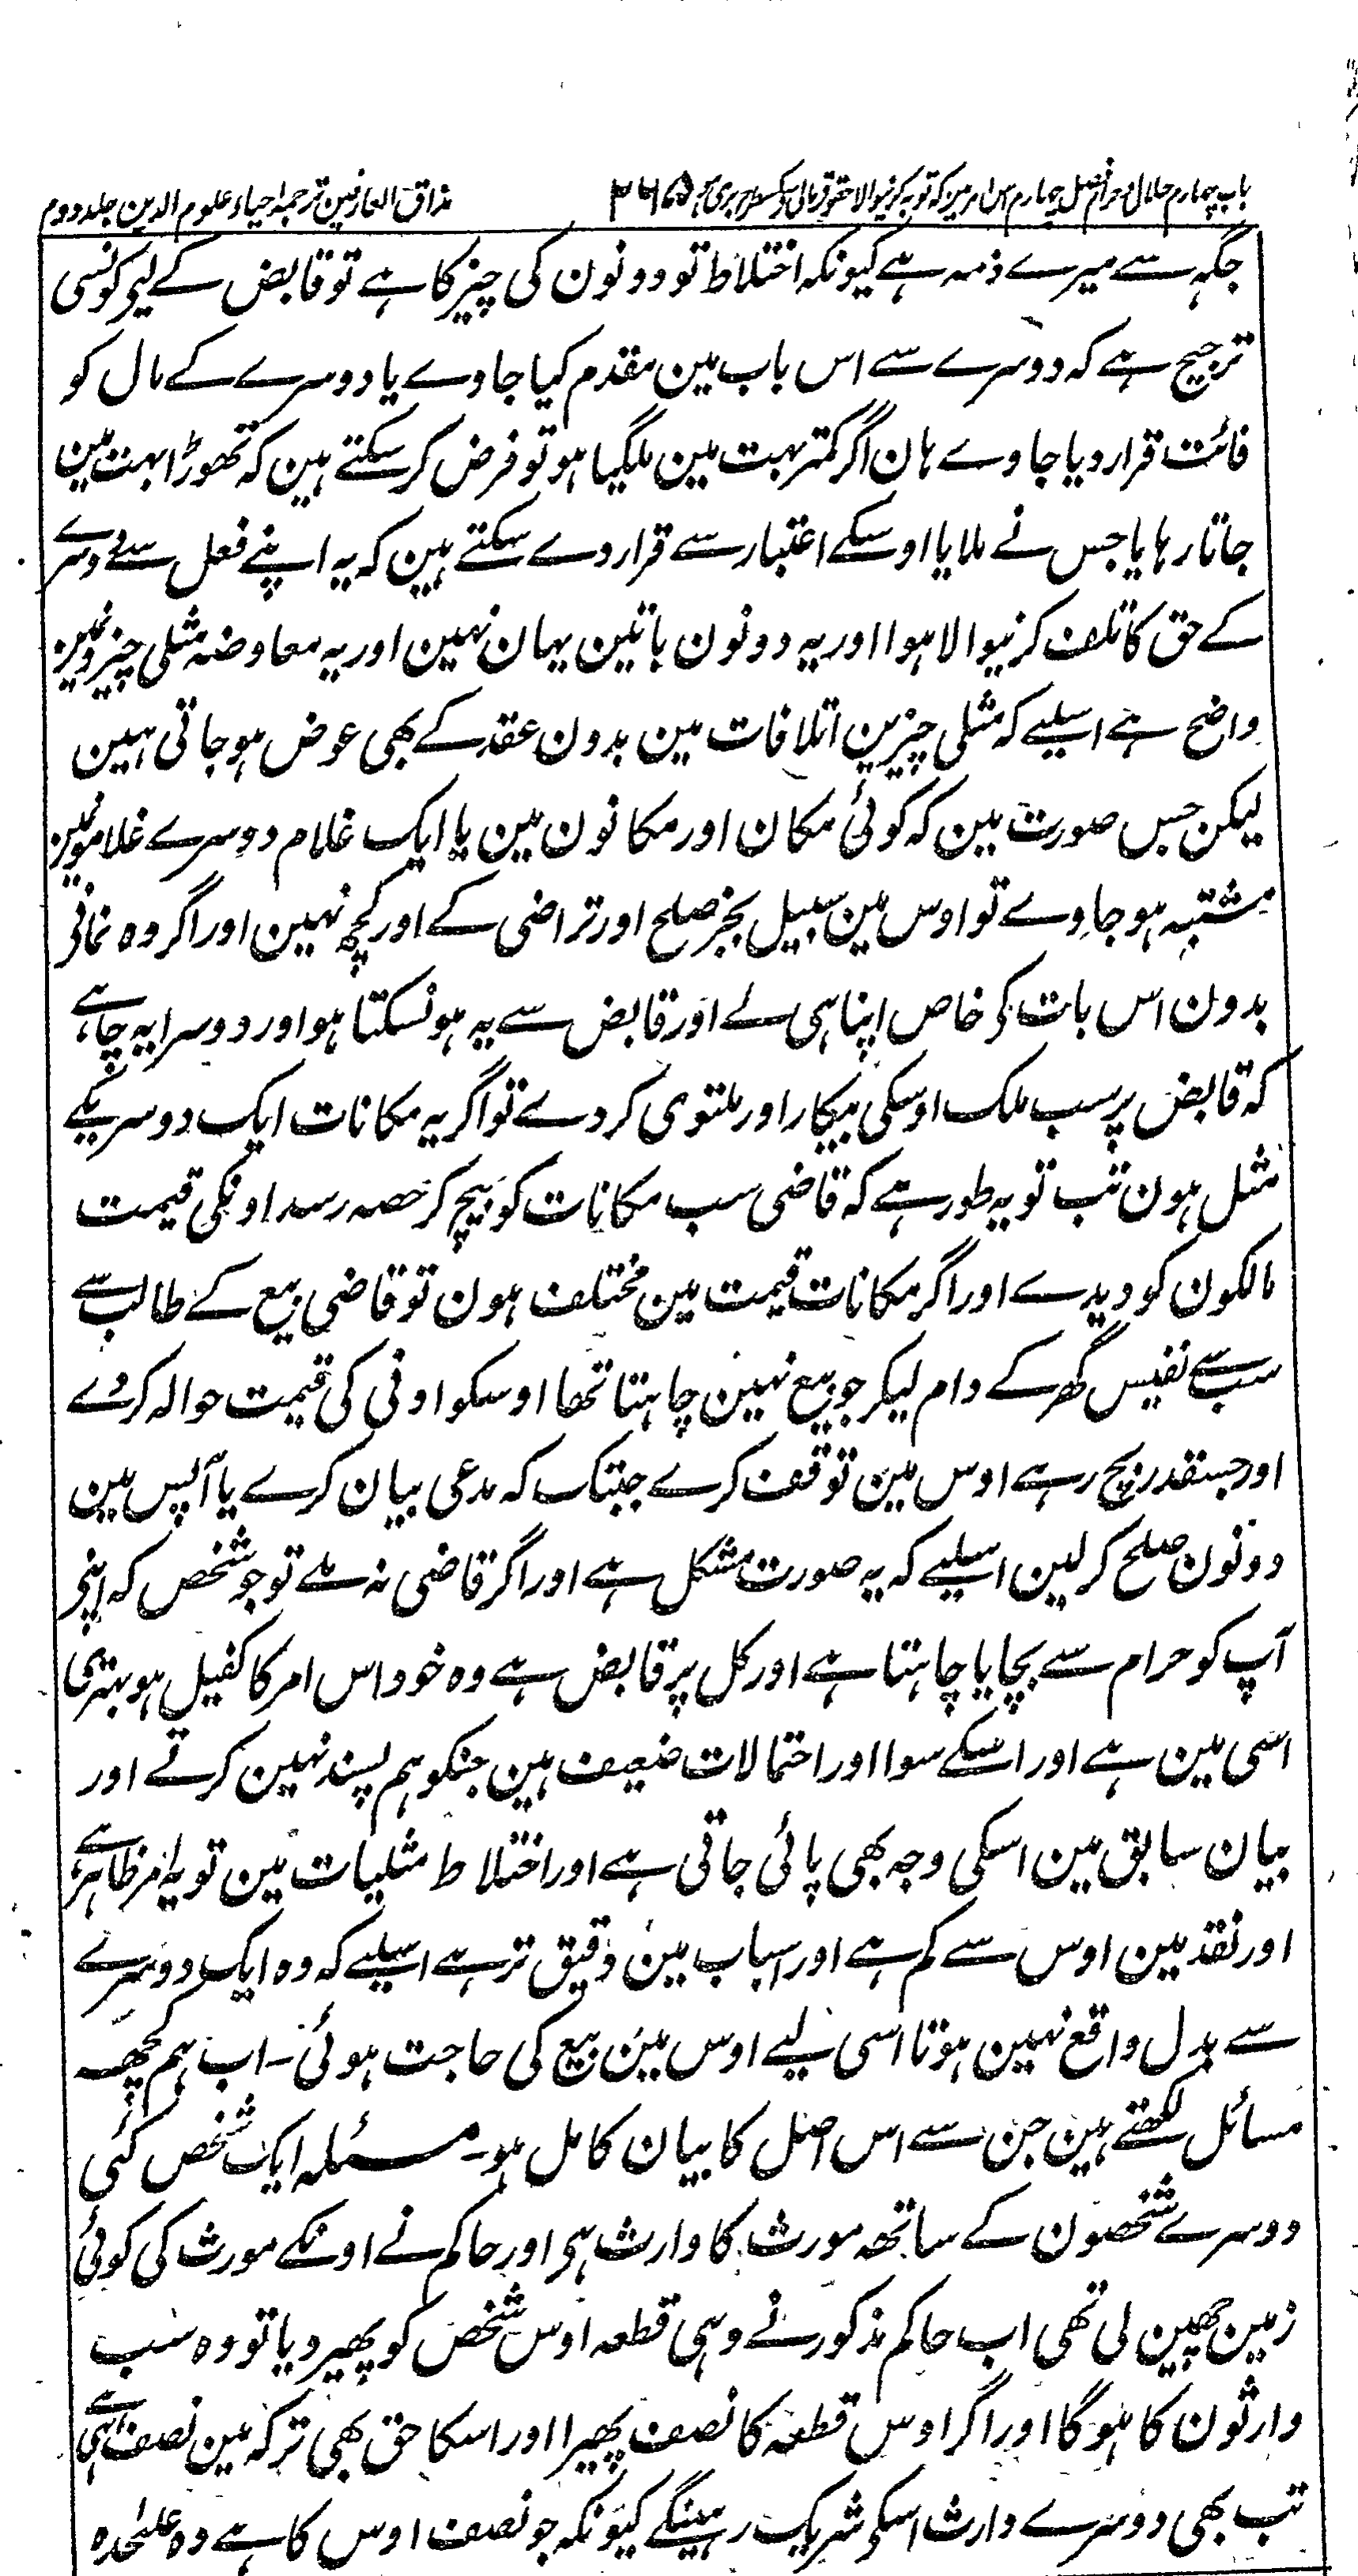 باب چہارم حلال و حرام فصل چہارم اس امر مین کہ توبہ کرنیوالا حقوق مالی سے کسطرح بری ہو ۲۶۵ مذاق العارفین ترجمہ احیاء علوم الدین جلد دوم
جگہہ سے میرے ذمہ ہے کیونکہ اختلاط تو دونون کی چیز کا ہے تو قابض کے لیے کونسی
ترجیح ہے کہ دوسرے سے اس باب مین مقدم کیا جاوے یا دوسرے کے مال کو
فائت قرار دیا جاوے ہان اگر کمتر بہت مین ملگیا ہو تو فرض کر سکتے ہین کہ تھوڑا بہت مین
جاتا رہا یا جس نے ملایا اوسکے اعتبار سے قرار دے سکتے ہین کہ یہ اپنے فعل سے دوسرے
کے حق کا تلف کرنیوالا ہوا اور یہ دونون باتین یہان نہین اور یہ معاوضہ مثلی چیزونمین
واضح ہے اسلیے کہ مثلی چیزین اتلافات مین بدون عقد کے بھی عوض ہو جاتی ہین
لیکن جس صورت مین کہ کوئی مکان اور مکانون مین یا ایک غلام دوسرے غلامونمین
مشتبہ ہو جاوے تو اوس مین سبیل بجز صلح اور تراضی کے اور کچھ نہین اور اگر وہ نمانے
بدون اس بات کے خاص اپنا ہی لے اور قابض سے یہ ہو نسکتا ہو اور دوسرا یہ چاہے
کہ قابض پر سب ملک اوسکی بیکار اور ملتوی کر دے تو اگر یہ مکانات ایک دوسریکے
مثل ہون تب تو یہ طور ہے کہ قاضی سب مکانات کو بیچ کر حصہ رسد اونکی قیمت
مالکون کو دیدے اور اگر مکانات قیمت مین مختلف ہون تو قاضی بیع کے طالب سے
سب سے نفیس گھر کے دام لیکر جو بیع نہین چاہتا تھا اوسکو اونی کی قیمت حوالہ کردے
اور جسقدر بچ رہے اوس مین توقف کرے جبتک کہ مدعی بیان کرے یا آپس مین
دونون صلح کر لین اسلیے کہ یہ صورت مشکل ہے اور اگر قاضی نہ ملے تو جو شخص کہ اپنے
آپ کو حرام سے بچایا چاہتا ہے اور کل پر قابض ہے وہ خود اس امر کا کفیل ہو بہتری
اسی مین ہے اور اسکے سوا اور احتمالات ضعیف ہین جنکو ہم پسند نہین کرتے اور
بیان سابق مین اسکی وجہ بھی پائی جاتی ہے اور اختلاط مثلیات مین تو یہ امر ظاہر ہے
اور نقد مین اوس سے کم ہے اور اسباب مین دقیق تر ہے اسلیے کہ وہ ایک دوسرے
سے بدل واقع نہین ہوتا اسی لیے اوس مین بیع کی حاجت ہوئی ۔ اب ہم کچھہ
مسائل لکھتے ہین جن سے اس اصل کا بیان کامل ہو۔ مسئلہ ایک شخص کئی
دوسرے شخصون کے ساتھہ مورث کا وارث ہی اور حاکم نے اونکے مورث کی کوئی
زمین چھین لی تھی اب حاکم مذکور نے وہی قطعہ اوس شخص کو پھیر دیا تو وہ سب
وارثون کا ہوگا اور اگر اوس قطعہ کا نصف پھیرا اور اسکا حق بھی ترکہ مین نصف ہی ہے
تب بھی دوسرے وارث اسکے شریک رہینگے کیونکہ جو نصف اوس کا ہے وہ علیٰحدہ